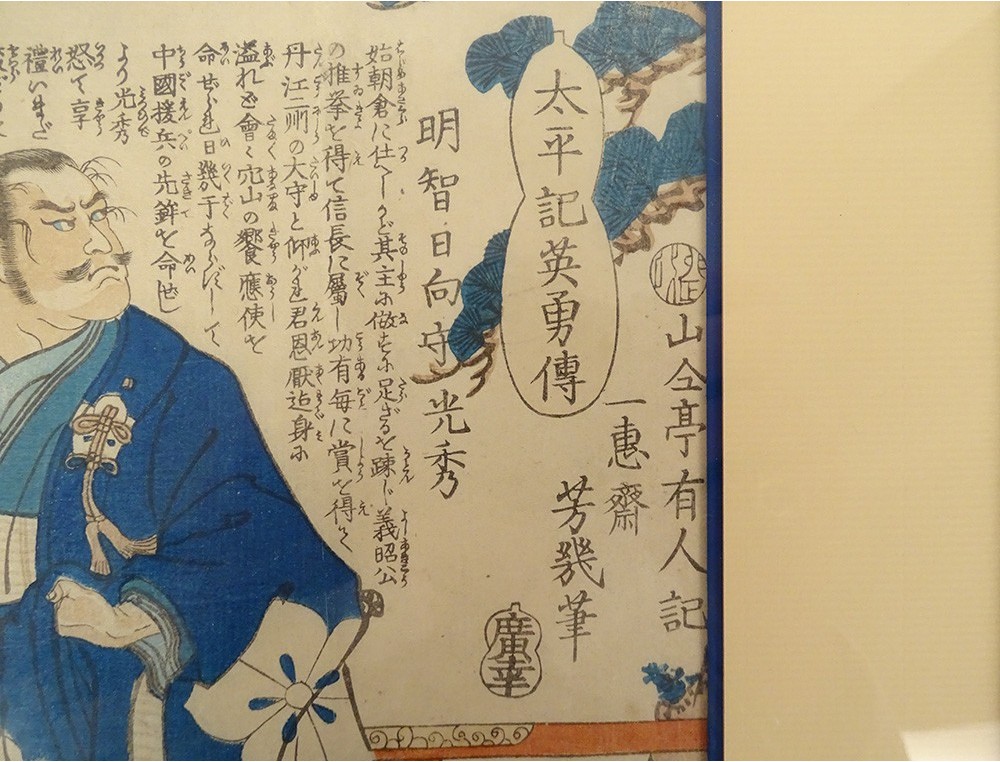 山仝亭有人記
太平記英勇傳
一惠齋
芳幾筆
廣幸
明智日向守光秀
始朝倉に仕へしが其主に做すに足ざるを疎じ義昭公
の推挙を得て信長に屬し功有毎に賞を得て
丹江二州の大守と仰がれ君恩厭迨身に
溢れ會々穴山の饗應使を
命ぜられ日幾干ならずして
中國援兵の先鉾を命ぜし
より光秀
怒て享
禮いまだ